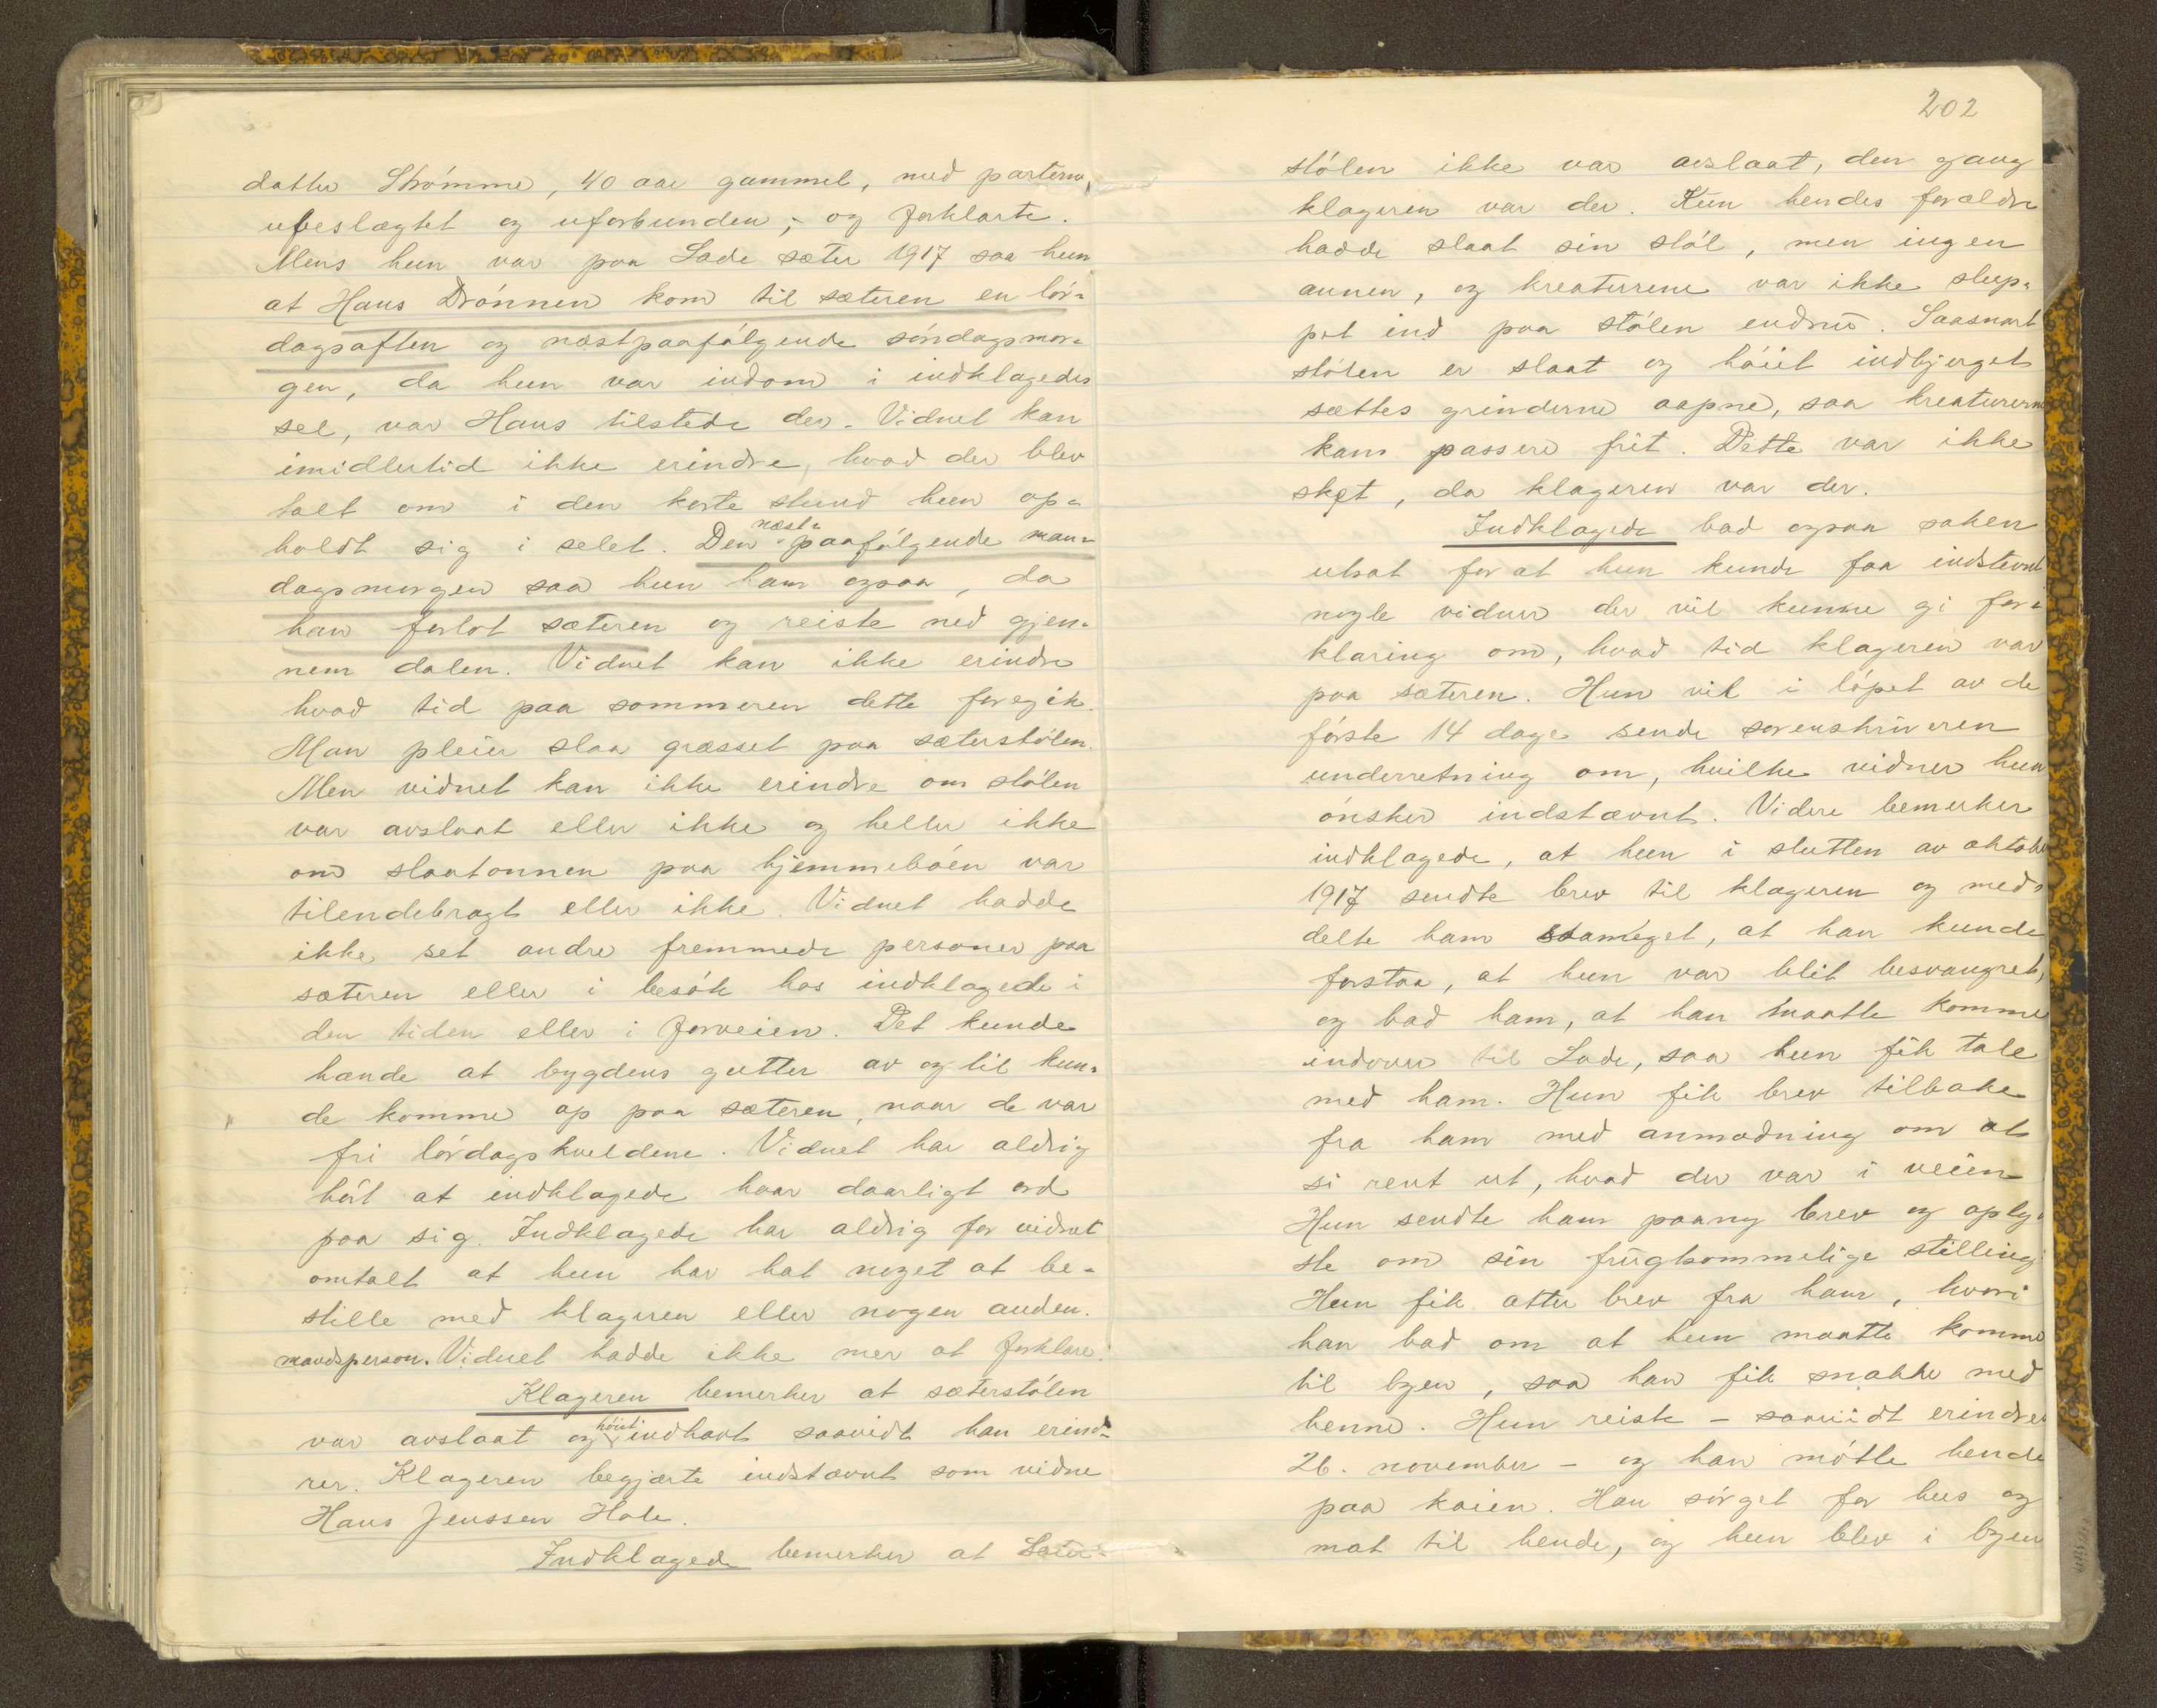 datter Strømme, 40 aar gammel, med parterne
ubeslægtet og uforbunden, og forklarte.
Mens hun var paa Lade sæter 1917 saa hun
at Hans Drønnen kom til sæteren en lør-
dagsaften og næstpaafølgende søndagsmor-
gen, da hun var indom i indklagedes
sel, var Hans tilstede der. Vidnet kan
imidlertid ikke erindre, hvad der blev
talt om i den korte stund hun op-
holdt sig i selet. Den næst-paafølgende man-
dagsmorgen saa hun ham ogsaa, da
han forlot sæteren og reiste ned gjen-
nem dalen. Vidnet kan ikke erindre
hvad tid paa sommeren dette foregik.
Man pleier slaa græsset paa sæterstølen.
Men vidnet kan ikke erindre om stølen
var avslaat eller ikke og heller ikke
om slaatonnen paa hjemmebøen var
tilendebragt eller ikke. Vidnet hadde
ikke set andre fremmede personer paa
sæteren eller i besøk hos indklagede i
den tiden eller i forveien. Det kunde
hænde at bygdens gutter av og til kun-
de komme op paa sæteren, naar de var
fri lørdagskveldene. Vidnet har aldrig
hørt at indklagede haar daarligt ord
paa sig. Indklagede har aldrig for vidnet
omtalt at hun har hat noget at be-
stille med klageren eller nogen anden
mandsperson. Vidnet hadde ikke mer at forklare.
Klageren bemerker at sæterstølen
var avslaat og høiet indhavt saavidt han erind-
rer. Klageren begjærte indstævnt som vidne
Hans Jenssen Hole.
Indklagede bemerker at Sæter-
202
stølen ikke var avslaat, den gang
klageren var der. Kun hendes forældre
hadde slaat sin støl, men ingen
annen, og kreaturene var ikke slup-
pet ind paa stølen endnu. Saasnart
stølen er slaat og høiet indbjerget
sættes grinderne aapne, saa kreaturerne
kan passere frit. Dette var ikke
sket, da klageren var der.
Indklagede bad ogsaa saken
utsat for at hun kunde faa indstevnt
nogle vidner der vil kunne gi for-
klaring om, hvad tid klageren var
paa sæteren. Hun vil i løpet av de
første 14 dage sende sorenskriveren
underretning om, hvilke vidner hun
ønsker indstævnt. Videre bemerker
indklagede, at hun i slutten av oktober
1917 sendte brev til klageren og med-
delte ham saameget, at han kunde
forstaa, at hun var blit besvangret,
og bad ham, at han maatte komme
indover til Lade, saa hun fik tale
med ham. Hun fik brev tilbake
fra ham med anmodning om at
si rent ut, hvad der var i veien
Hun sendte ham paany brev og oply-
ste om sin frugtsommelige stilling.
Hun fik atter brev fra ham, hvori
han bad om at hun maatte komme
til byen, saa han fik snakke med
henne. Hun reiste – saavidt erindres
26. november – og han møtte hende
paa kaien. Han sørget for hus og
mat til hende, og hun blev i byen